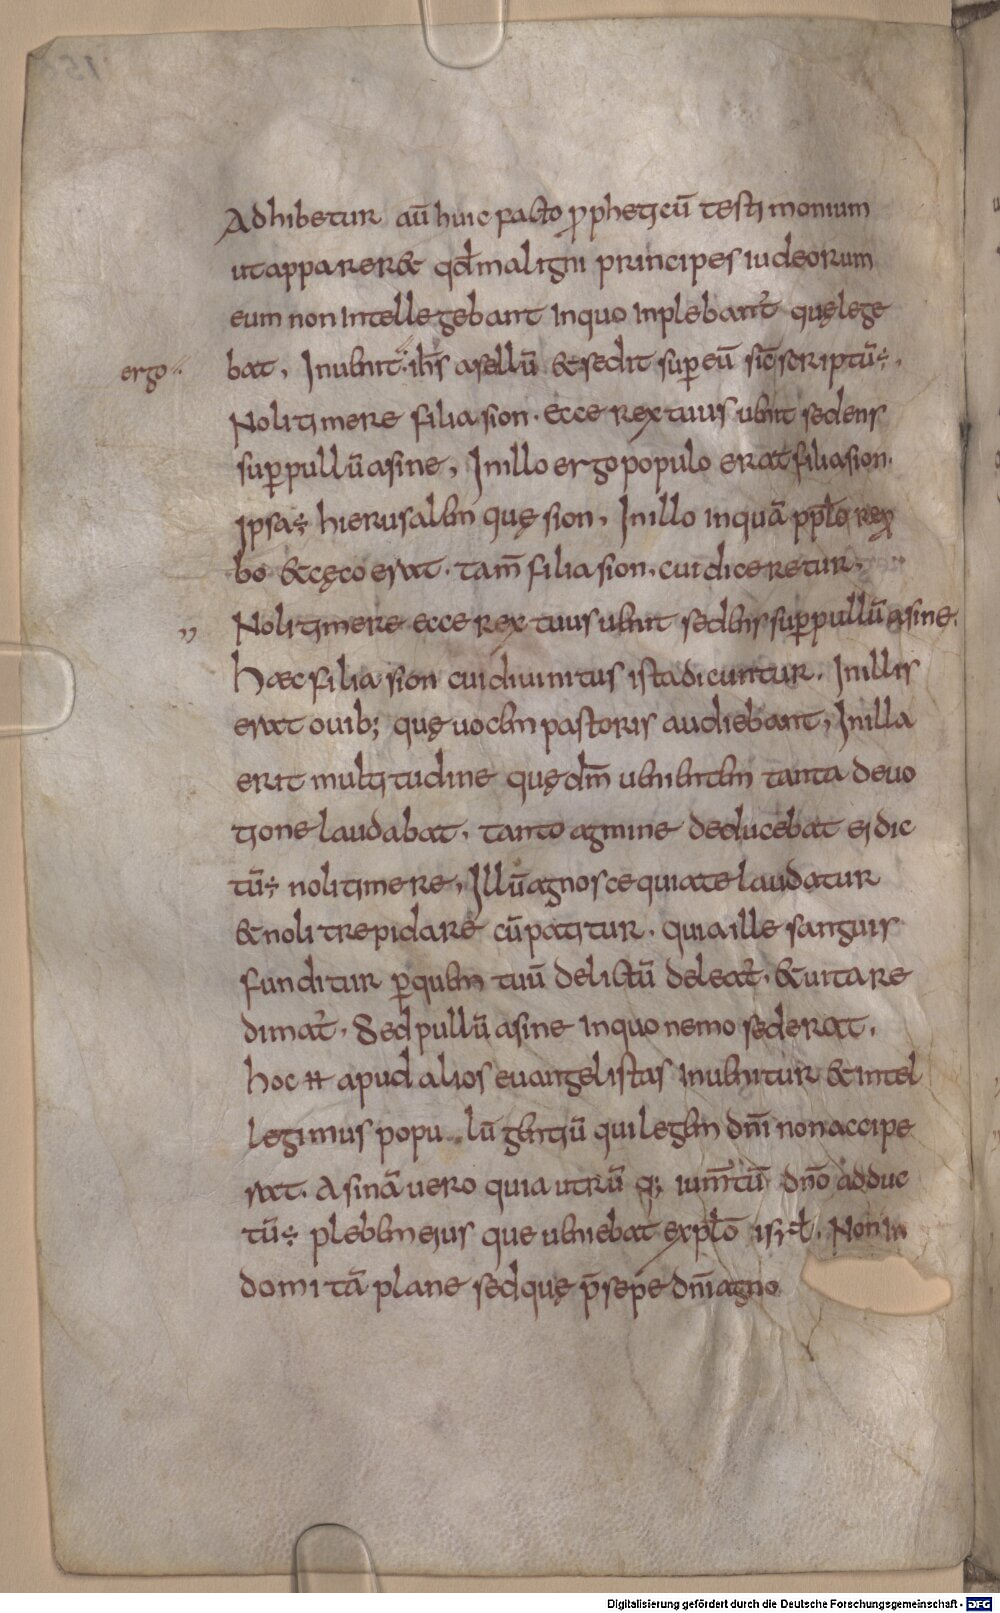 Adhibetur aū huic facto ꝓpheticū testimonium
ut appareret qđ maligni principes iudeorum
eum non intellegebant in quo inplebant᷑ quę lege
ergo bat, Inuenit ih̄s asellū & sedit suꝑ eū sic̄ scriptū ÷,
Noli timere filia sion. ecce rex tuus uenit sedens
suꝑ pullū asine, In illo ergo populo erat filia sion.
ipsa ÷ hierusalem quę sion, In illo inquā ppło re
bo & cęco erat. tam̄ filia sion. cui diceretur,
Noli timere ecce rex tuus uenit sedens suꝑ pullū asine.
Hæc filia sion cui diuinitus ista dicuntur. In illis
erat ouib; quę uocem pastoris audiebant, In illa
erit multitudine quę dn̄m uenientem tanta deuo
tione laudabat. tanto agmine deducebat ei dic
tū ÷ noli timere, Illū agnosce qui a te laudatur
& noli trepidare cū patitur. quia ille sanguis
funditur ꝑ quem tuū delictū deleat᷑. & uita re
dimat᷑. Sed pullū asine in quo nemo sederat.
hoc ++ apud alios euangelistas inuenitur & intel
legimus popu lū gentiū qui legem dn̄i non accipe
rat. Asinā uero quia utrūq; ium̄tū dn̄o adduc
tū ÷ plebem eius que ueniebat ex ppło isrł. Non in
domitā plane sed quę p̄sepe dn̄i agno
Digitalisierung gefördert durch die Deutsche Forschungsgemeinschaft - DFG